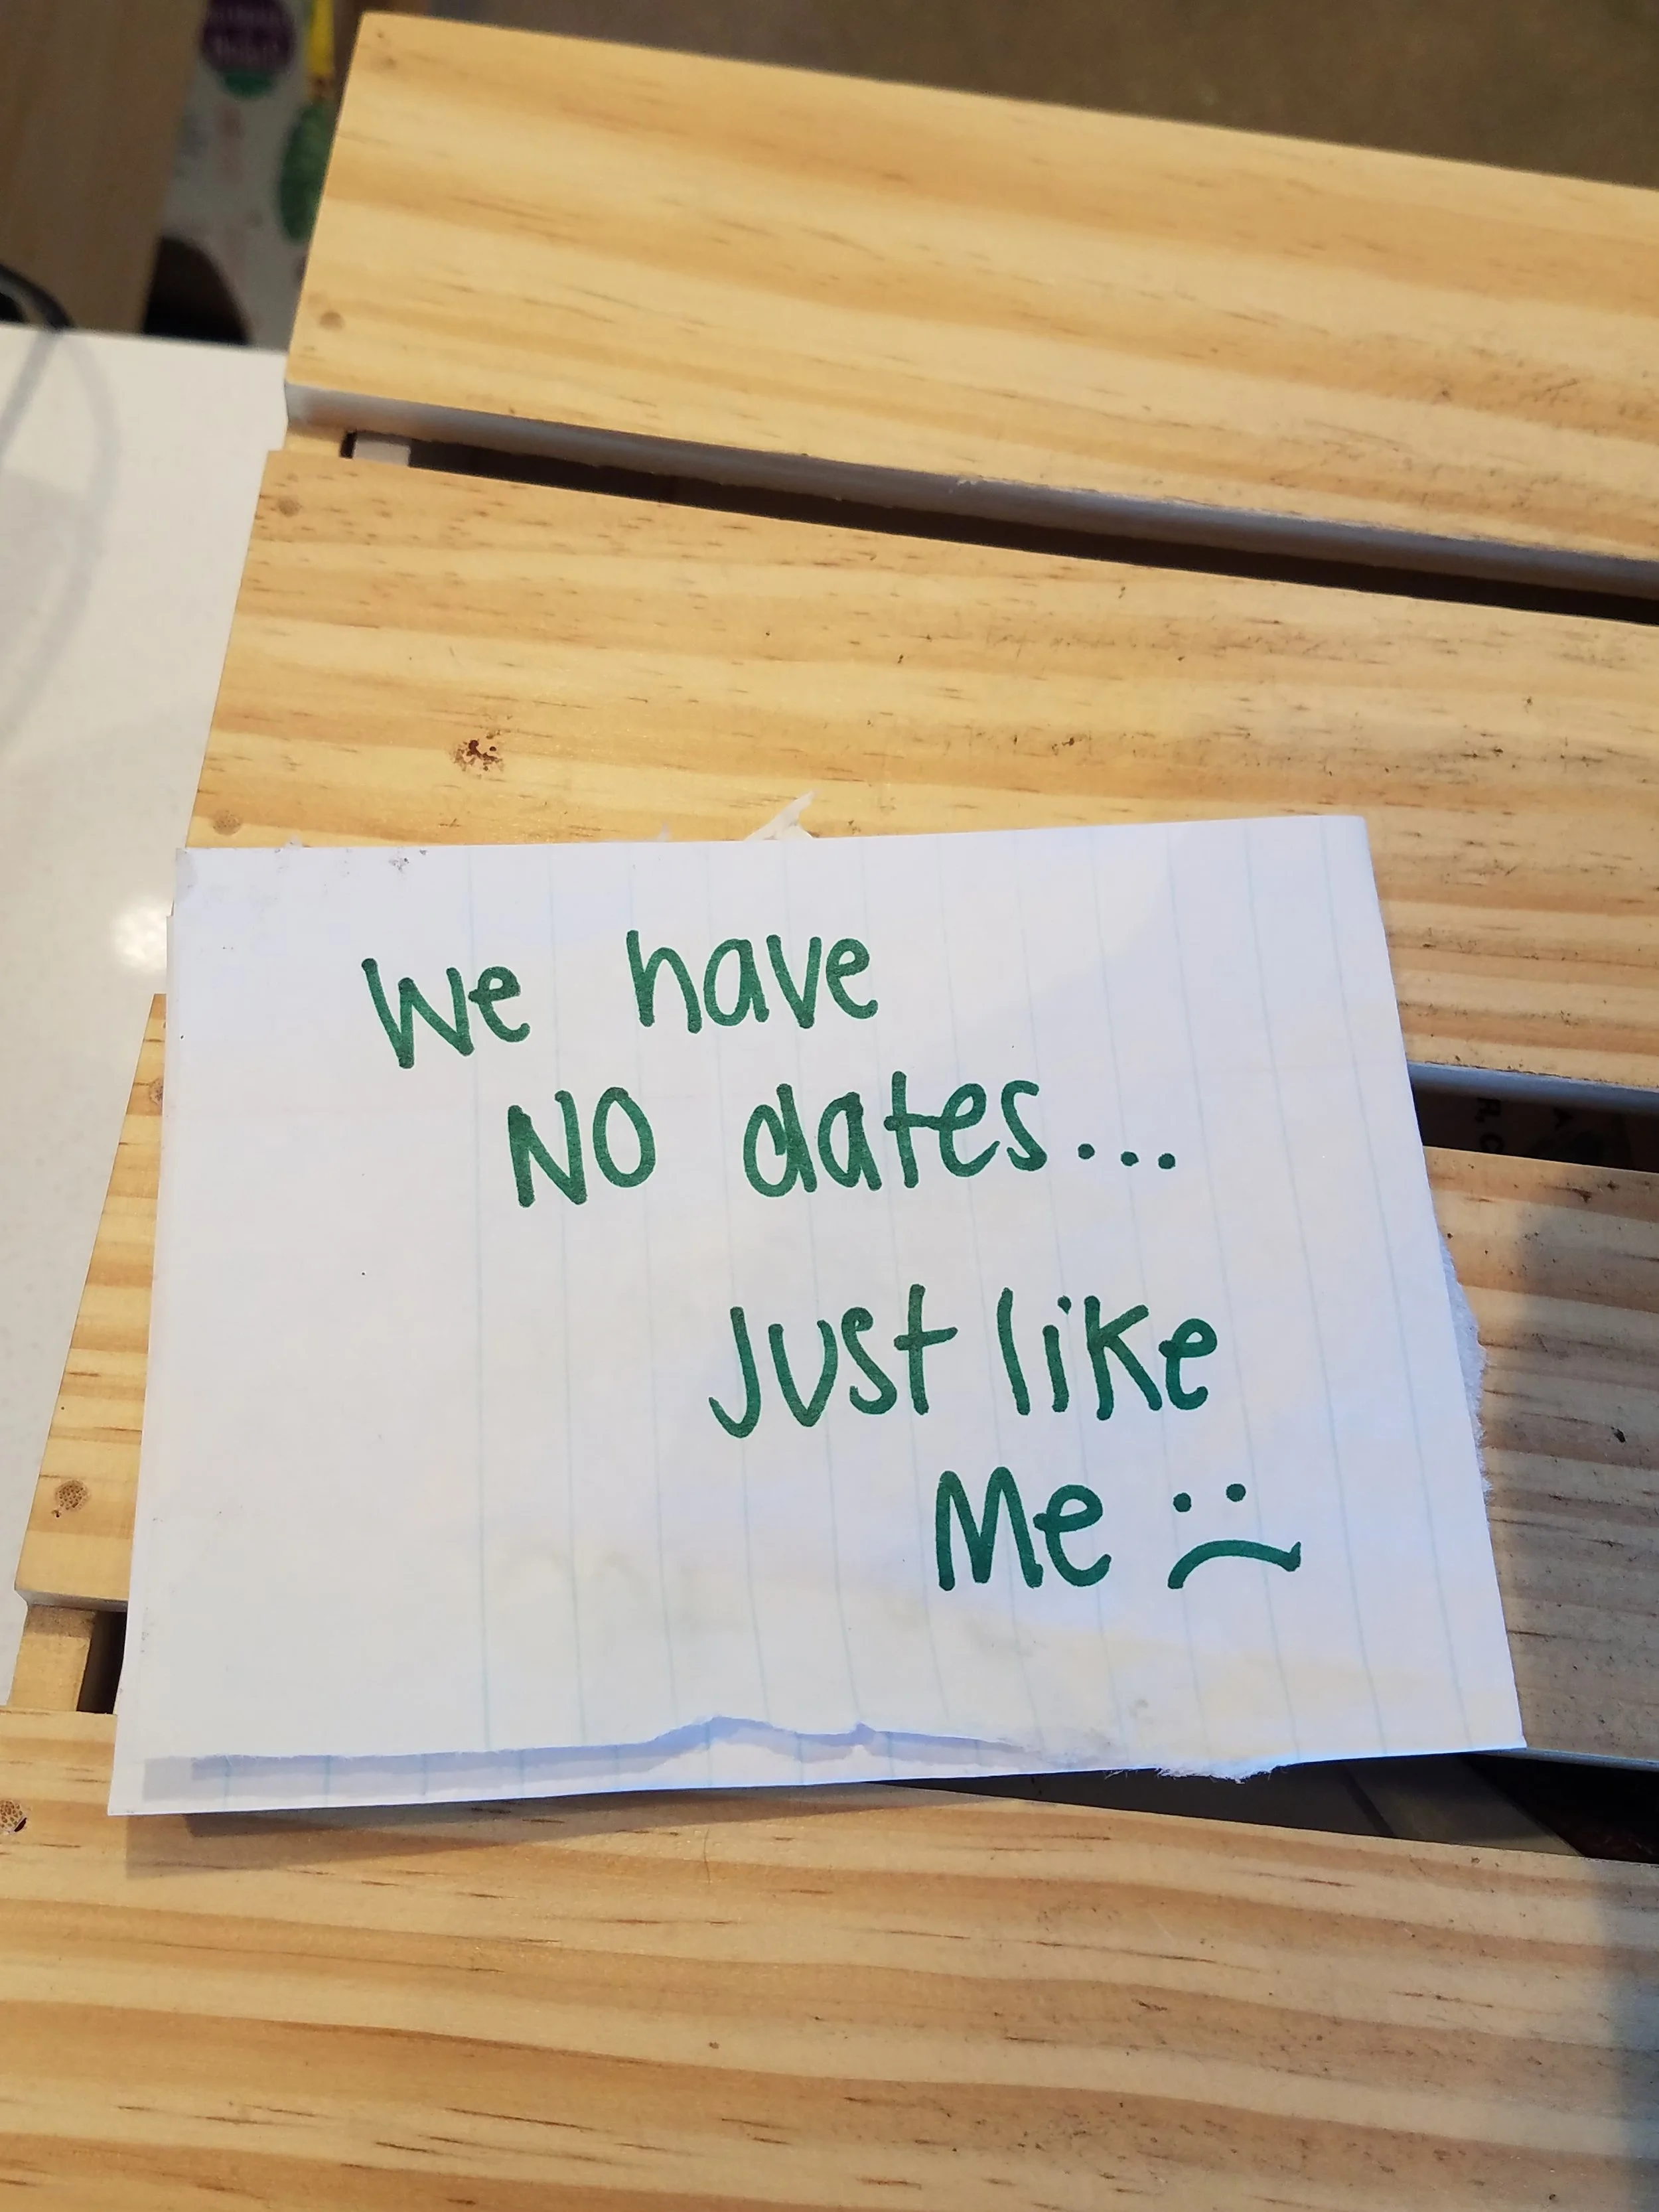 We have
NO dates...
Just like
Me :(
R.C
A